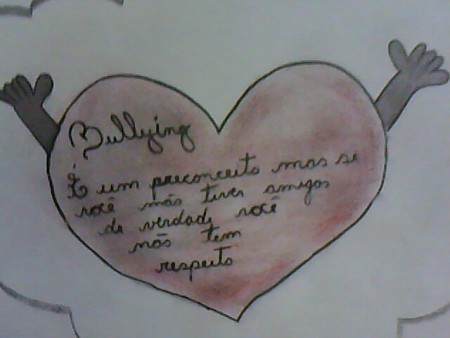 Bullying
É um preconceito mas se
você não tiver amigos
de verdade você
não tem
respeito